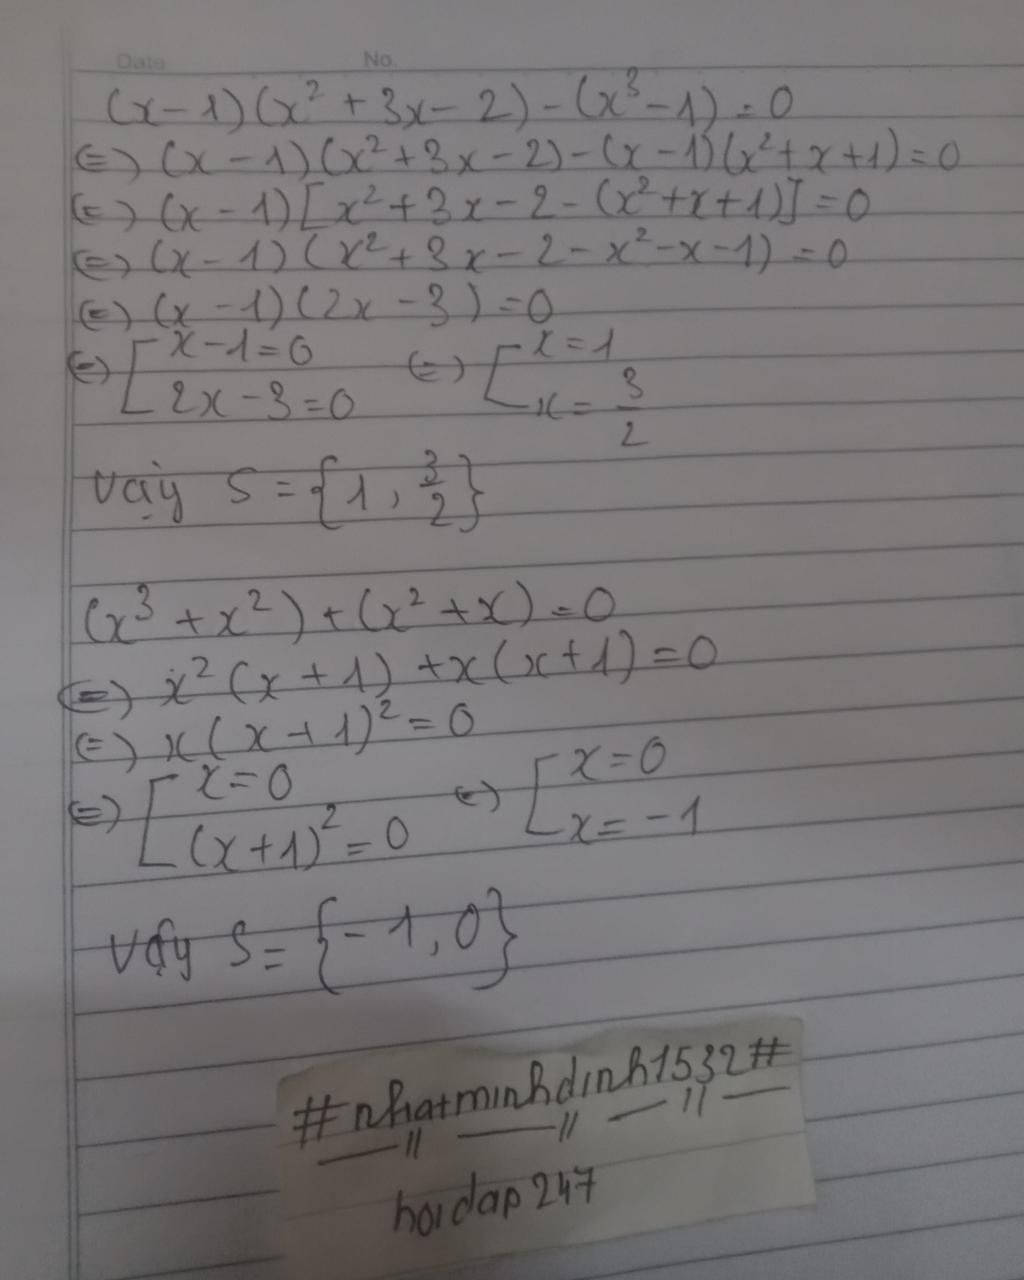 Date No.
(x-1)(x² + 3x - 2) - (x³ - 1) = 0
(=) (x - 1)(x² + 3x - 2) - (x - 1)(x² + x + 1) = 0
(=) (x - 1)[x² + 3x - 2 - (x² + x + 1)] = 0
(=) (x - 1)(x² + 3x - 2 - x² - x - 1) = 0
(=) (x - 1)(2x - 3) = 0
(=) [ x - 1 = 0 (=) [ x = 1
2x - 3 = 0 x = 3/2
Vậy S = {1, 3/2}
(x³ + x²) + (x² + x) = 0
(=) x²(x + 1) + x(x + 1) = 0
(=) x(x + 1)² = 0
(=) [ x = 0 (=) [ x = 0
(x + 1)² = 0 x = -1
Vậy S = {-1, 0}
#nhatminhdinh1532#
hoidap247